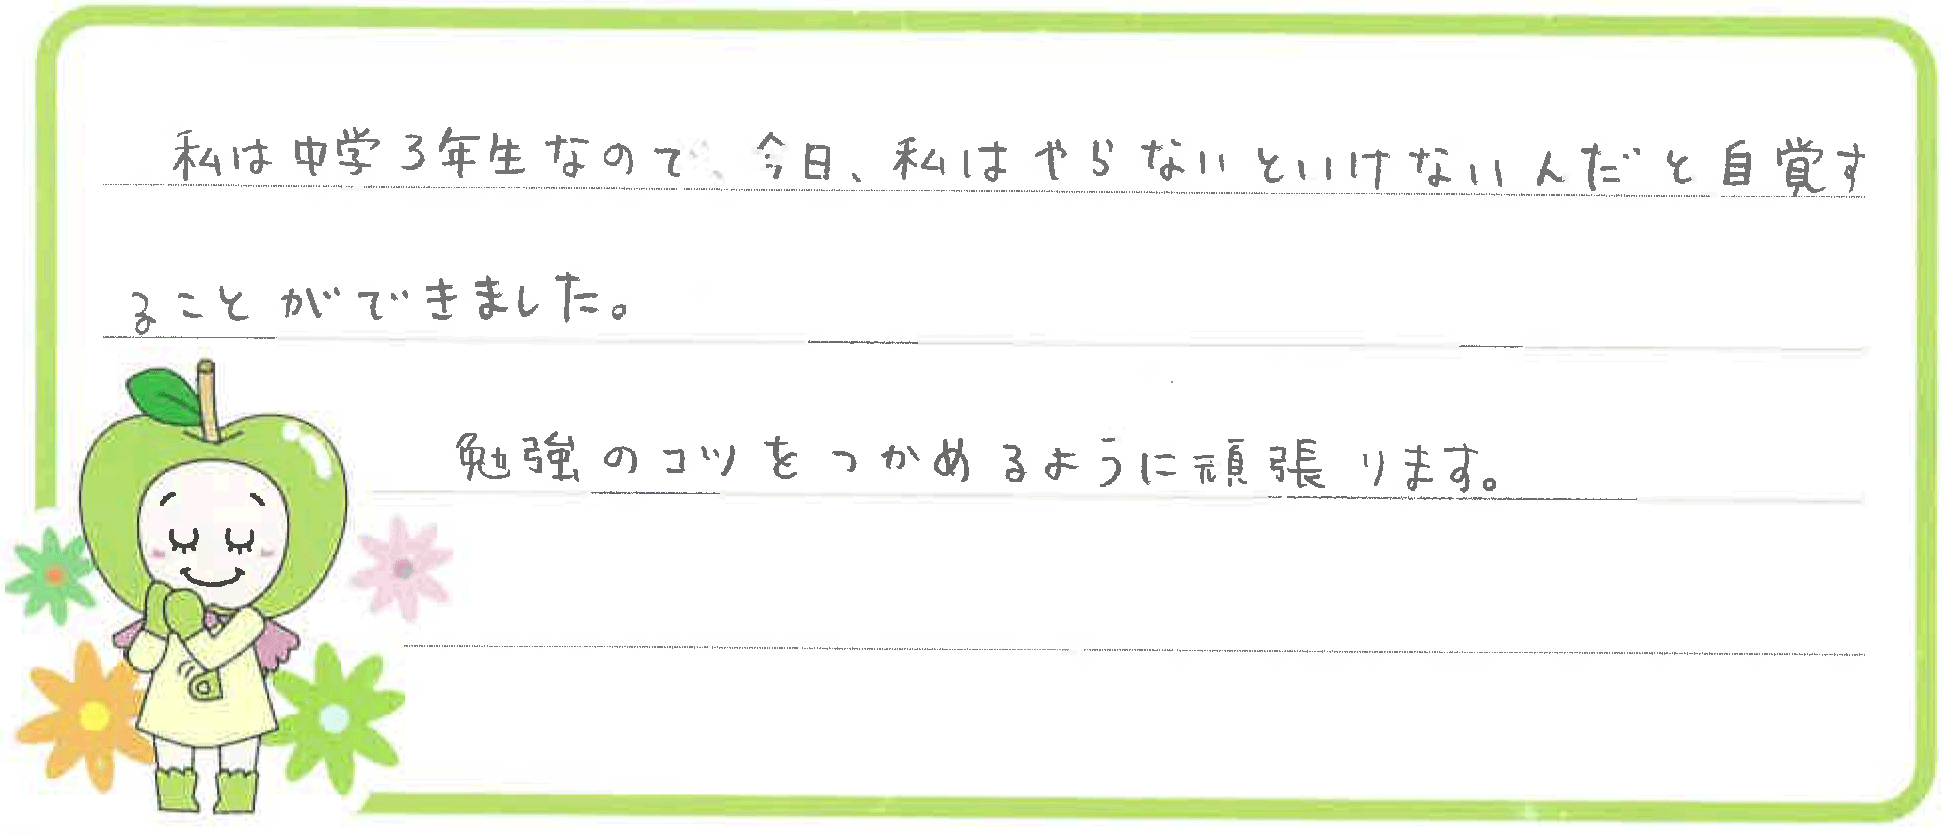 私は中学3年生なので、今日、私はやらないといけないんだと自覚す
ることができました。
勉強のコツをつかめるように頑張ります。